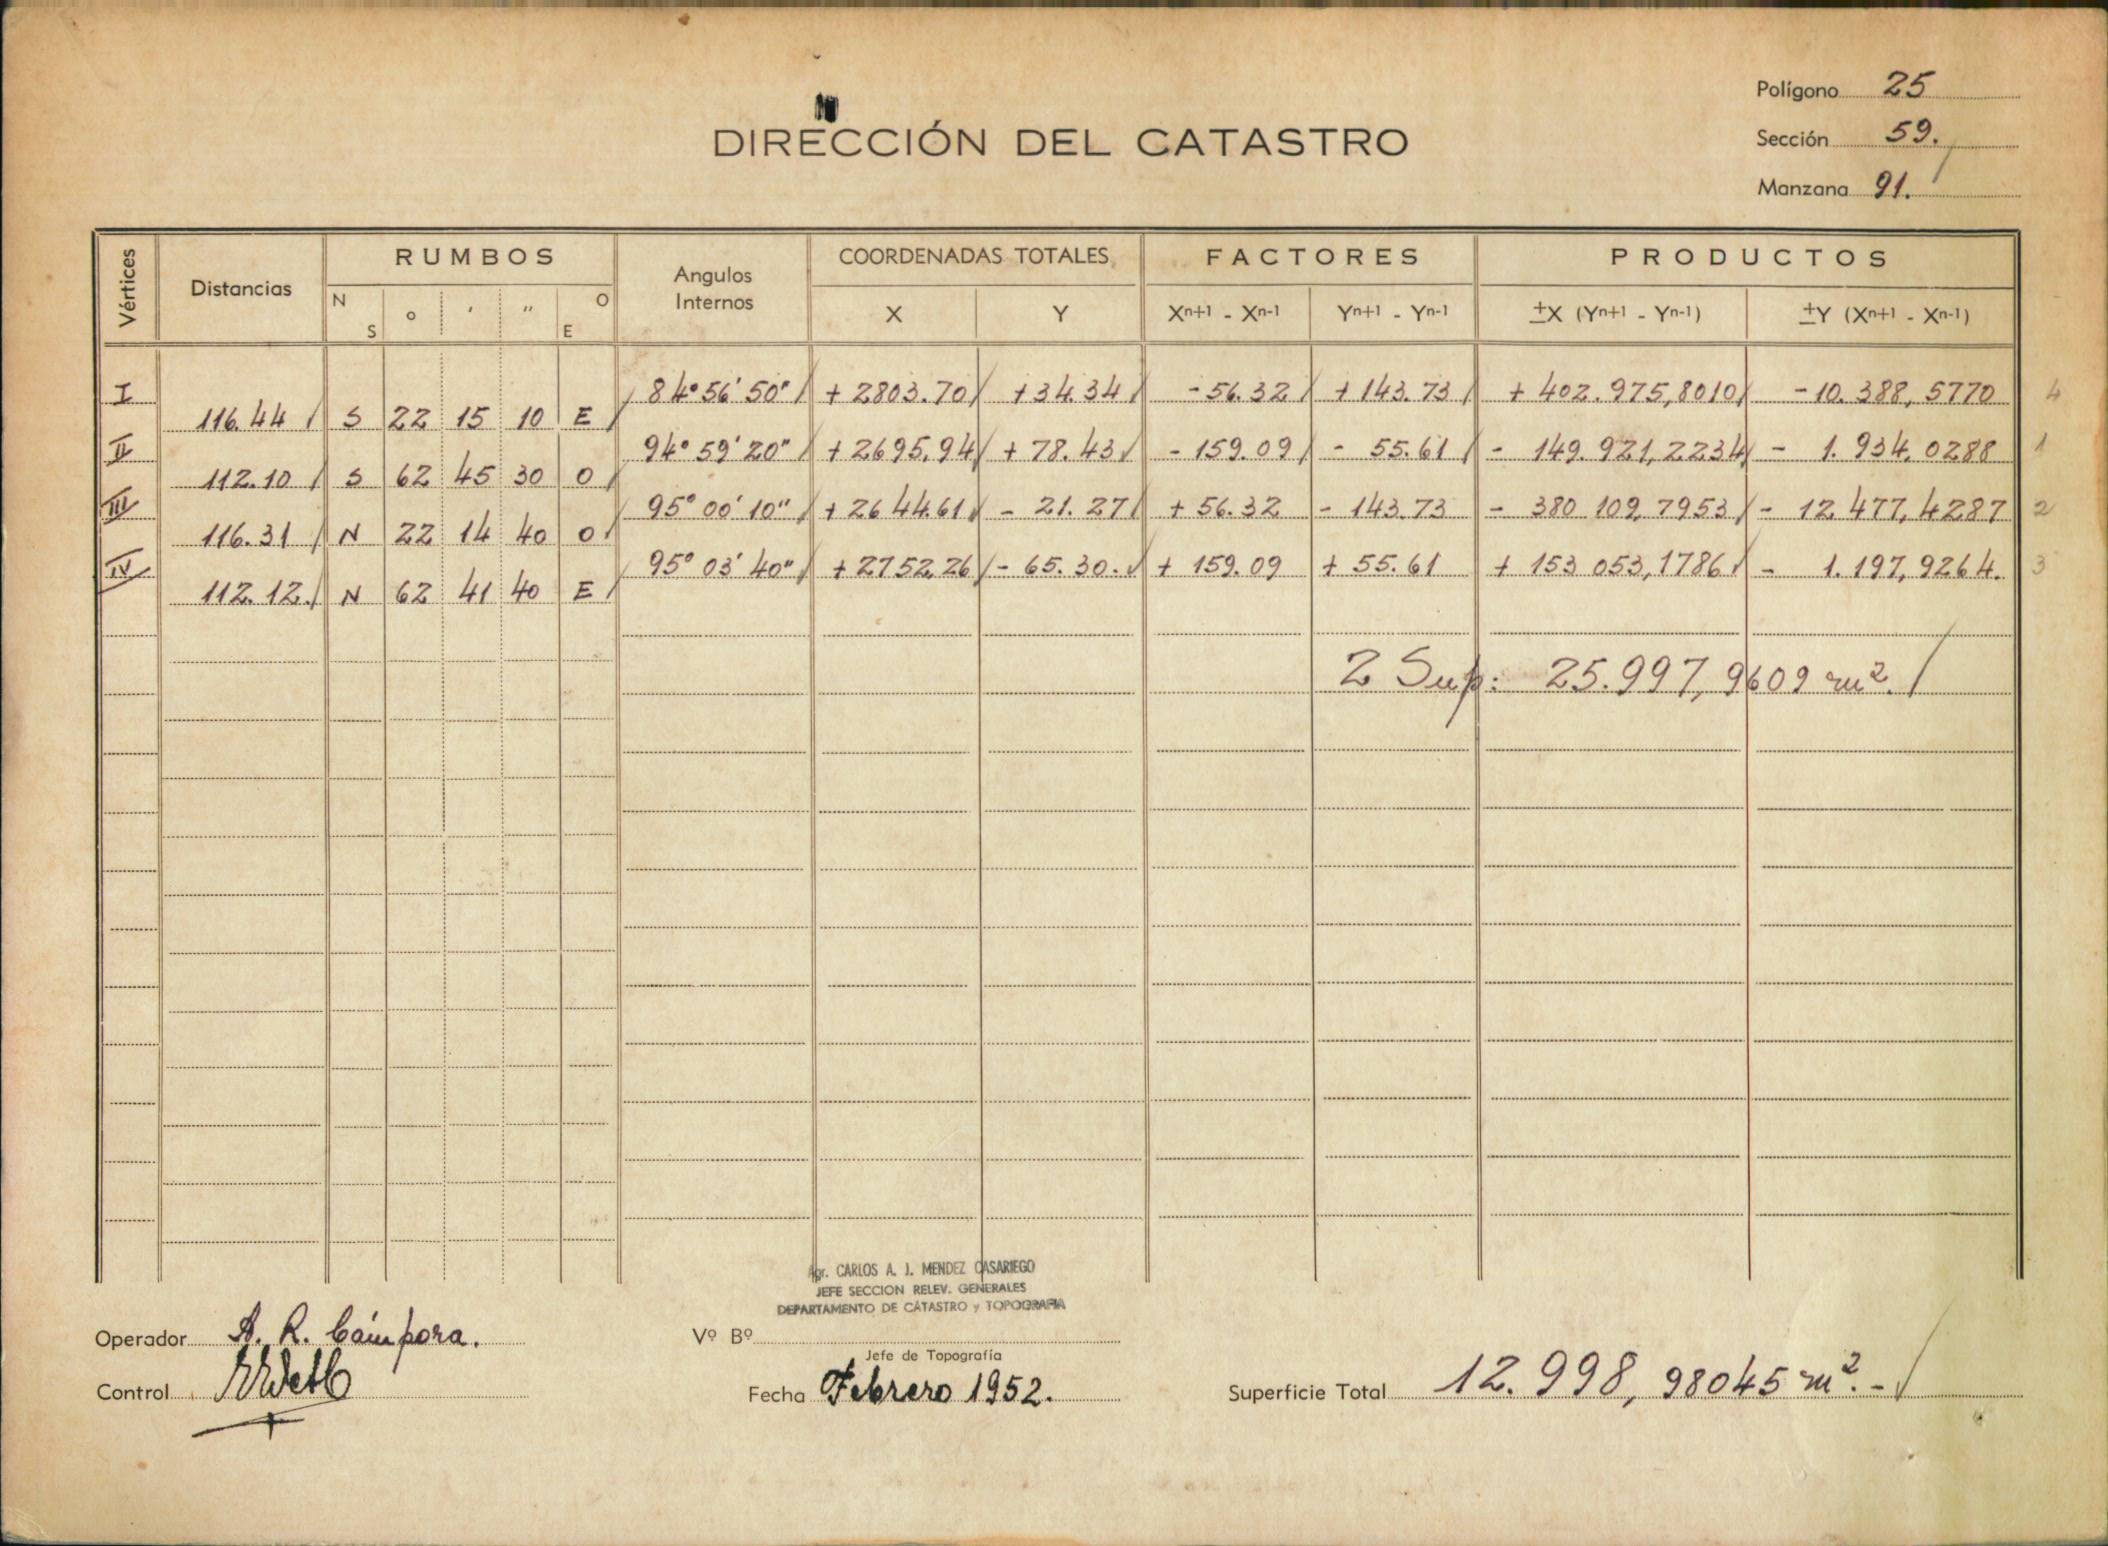 Polígono 25
DIRECCIÓN DEL CATASTRO
Sección 59.
Manzana 91.
Vértices Distancias RUMBOS Angulos Internos COORDENADAS TOTALES FACTORES PRODUCTOS
N S o ' " O E X Y Xn+1 - Xn-1 Yn+1 - Yn-1 ±X (Yn+1 - Yn-1) ±Y (Xn+1 - Xn-1)
I 84° 56' 50" + 2803.70 + 34.34 - 56.32 + 143.73 + 402.975,8010 - 10.388,5770 4
116.44 S 22 15 10 E
II 94° 59' 20" + 2695.94 + 78.43 - 159.09 - 55.61 - 149.921,2234 - 1.934.0288 1
112.10 S 62 45 30 O
III 95° 00' 10" + 2644.61 - 21.27 + 56.32 - 143.73 - 380 109,7953 - 12.477,4287 2
116.31 N 22 14 40 O
IV 95° 03' 40" + 2752.26 - 65.30. + 159.09 + 55.61 + 153 053,1786 - 1.197,9264. 3
112.12. N 62 41 40 E
2 Sup: 25.997,9609 m².
Agr. CARLOS A. J. MENDEZ CASARIEGO
JEFE SECCION RELEV. GENERALES
DEPARTAMENTO DE CATASTRO y TOPOGRAFIA
Operador A. R. Cámpora.
Vº Bº
Jefe de Topografía
Control
Fecha Febrero 1952.
Superficie Total 12.998,98045 m².-